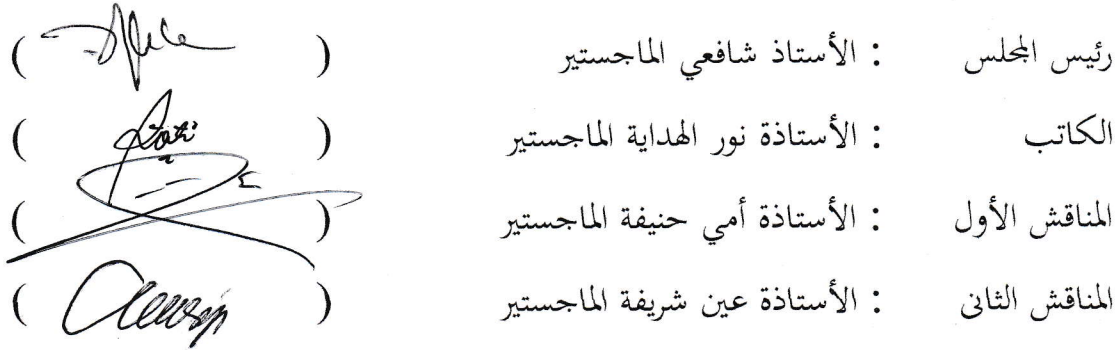 رئيس المجلس : الأستاذ شافعي الماجستير ( )
الكاتب : الأستاذة نور الهداية الماجستير ( )
المناقش الأول : الأستاذة أمي حنيفة الماجستير ( )
المناقش الثانى : الأستاذة عين شريفة الماجستير ( )